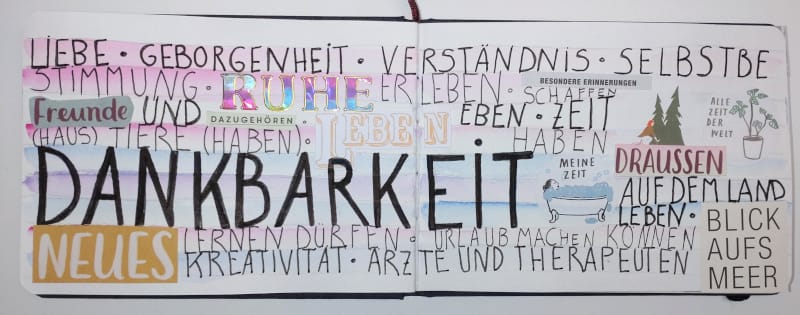 LIEBE · GEBORGENHEIT · VERSTÄNDNIS · SELBSTBE
STIMMUNG · RUHE ERLEBEN · BESONDERE ERINNERUNGEN SCHAFFEN
Freunde UND DAZUGEHÖREN · LEBEN EBEN · ZEIT
(HAUS) TIERE (HABEN) · HABEN
ALLE
ZEIT
DER
WELT
DANKBARKEIT
MEINE
ZEIT
DRAUSSEN
AUF DEM LAND
LEBEN ·
NEUES LERNEN DÜRFEN · URLAUB MACHEN KÖNNEN
KREATIVITÄT · ÄRZTE UND THERAPEUTEN
BLICK
AUFS
MEER